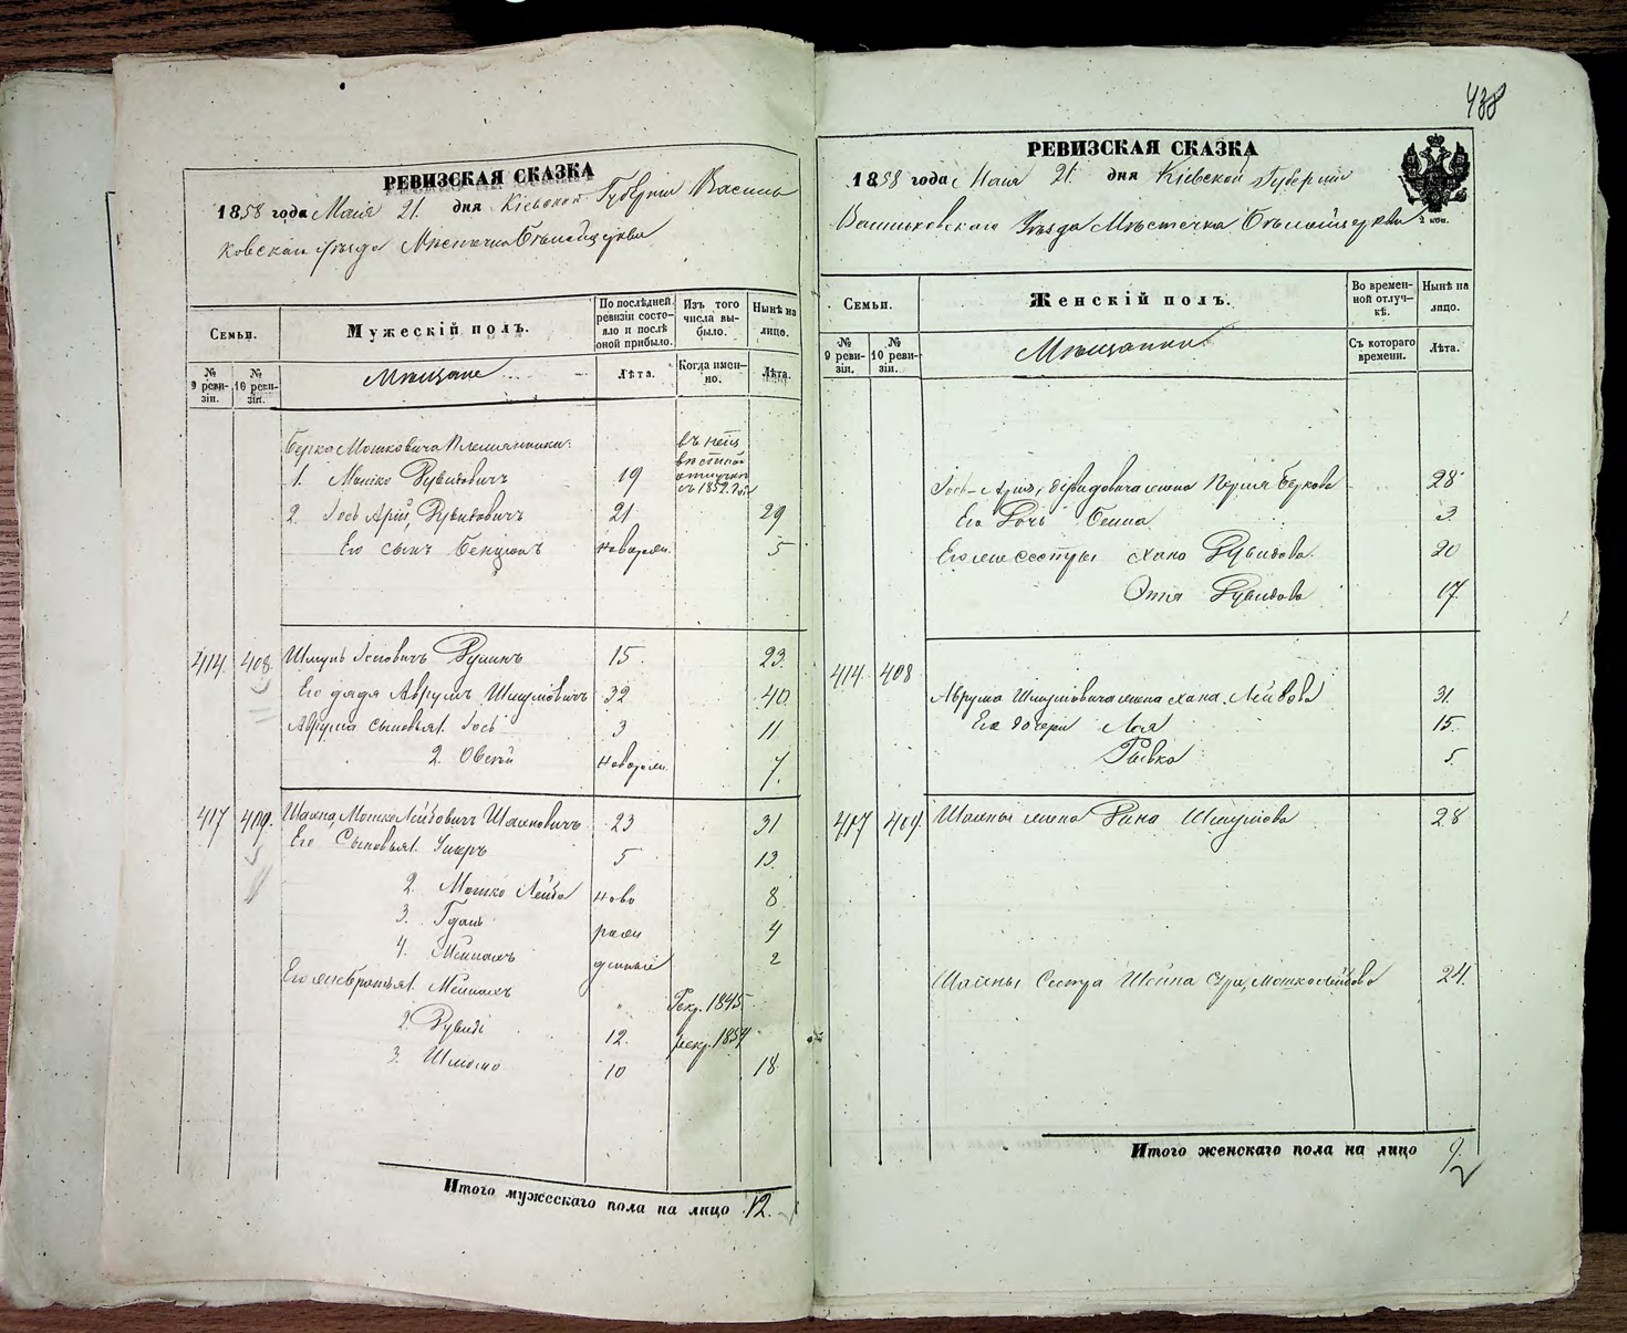 438
РЕВИЗСКАЯ СКАЗКА
1858 года Мая 21. дня Кіевской Губерніи Василь
ковскаго уѣзда Мѣстечка Бѣлойцеркви
Семьи.
Мужескій полъ.
По послѣдней ревизіи состояло и послѣ оной прибыло.
Изъ того числа выбыло.
Нынѣ на лицо.
№ 9 ревизіи.
№ 10 ревизіи.
Мѣщане
Лѣта.
Когда именно.
Лѣта.
Берка Мошковича Племянники:
1. Мошко Рувидовичъ 19 въ неизвѣстной отлучкѣ съ 1852 года
2. Іось Арій, Рувидовичъ 21 29
Его сынъ новорож. 5
414 408 Шмуль Іосіовичъ 15. 23.
Его дядя Аврумъ Шмуліовичъ 32 40.
Аврума сыновья 1. Іось 3 11
2. Овсѣй новорож. 7
417 409. Шаина, Мошко Лейбовичъ Шаиновичъ 23 31
Его Сыновья 1. 5 13.
2. Мошко Лейба ново 8
3. рож 4
4. денные 2
Его же братья 1. " Рекр. 1845
2. Рувидъ 12. рекр. 1854
3. Шліомо 10 18
Итого мужескаго пола на лицо 12.
РЕВИЗСКАЯ СКАЗКА
1858 года Мая 21. дня Кіевской Губерніи
Васильковскаго Уѣзда Мѣстечка Бѣлойцеркви
2 коп.
Семьи.
Женскій полъ.
Во временной отлучкѣ.
Нынѣ на лицо.
№ 9 ревизіи.
№ 10 ревизіи.
Мѣщанки
Съ котораго времени.
Лѣта.
Іось-Арія, Рувидовича жена Беркова 28
Его Дочь 3.
Его же сестры Хана Рувидова. 20
Этя Рувидова 17.
414. 408
Аврума Шмуліовича жена Хана Лейбова 31.
Его дочери Лея 15.
Ривка 5.
417 409. Шаины жена Шмуліова 28
Шаины Сестра Шейна Мошколейбова 24.
Итого женскаго пола на лицо 9.